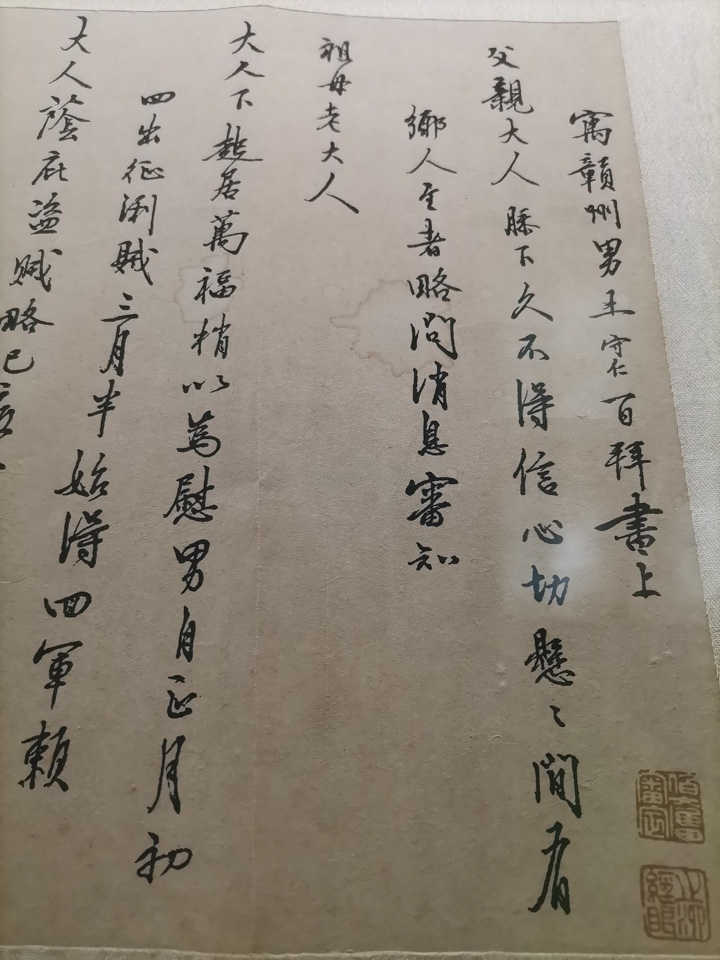 寓贛州男王守仁百拜書上
父親大人膝下久不得信心切懸〻間有
鄉人至者略問消息審知
祖母老大人
大人下起居萬福稍以為慰男自正月初
四出征浰賊三月半始得回軍賴
大人蔭庇盜賊略已
伯奮審定